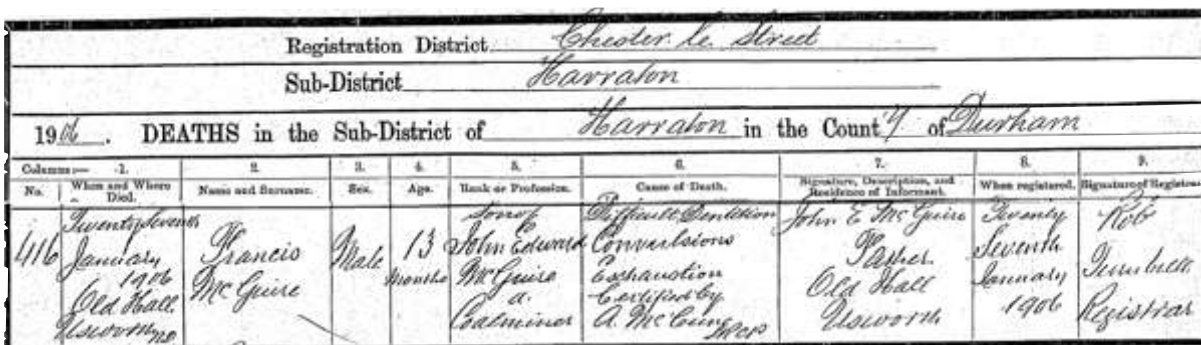 Registration District Chester le Street
Sub-District Harraton
1906. DEATHS in the Sub-District of Harraton in the County of Durham
Columns:— 1. 2. 3. 4. 5. 6. 7. 8. 9.
No. When and Where Died. Name and Surname. Sex. Age. Rank or Profession. Cause of Death. Signature, Description, and Residence of Informant. When registered. Signature of Registrar
416
Twenty Seventh
January
1906
Old Hall
Usworth
Francis
McGuire
Male
13
months
Son of
John Edward
McGuire
a
Coalminer
Difficult Dentition
Convulsions
Exhaustion
Certified by
A. McCung
John E McGuire
Father
Old Hall
Usworth
Twenty
Seventh
January
1906
Rob
Turnbull
Registrar